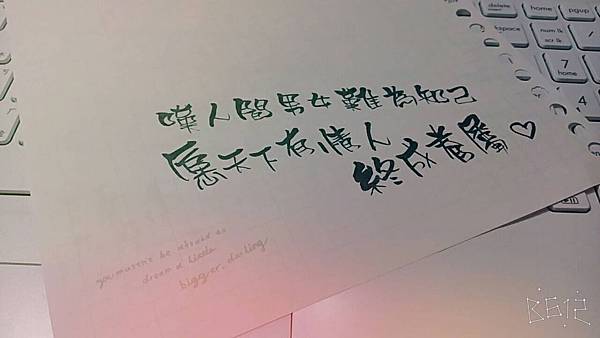 嘆人間男女難為知己
愿天下有情人
終成眷屬♡
you mustn't be afraid to
dream a little
bigger, darling
delete
home
pgup
backspace
num lk
scr lk
7
home
4
B612